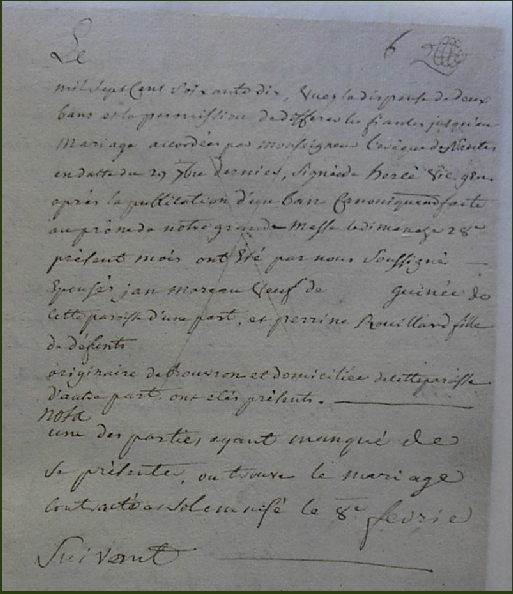 Le 6
mil sept Cent soixante dix, vu la dispense de deux
bans et la permission de differer les fiancles jusqu'au
Mariage accordees par monseigneur L'evêque de Nantes
en datte du 29 9bre dernier, signée de hercé Vic. gen.
après la publication d'un ban Canoniquement faite
au prône de notre grande Messe le dimanche 28e
présent mois ont été par nous soussigné
Epousés jan moreau veuf de guinée de
cette paroisse d'une part, et perrine Rouillard fille
de défunts
originaire de bouvron et domiciliée de cette paroisse
d'autre part. ont etés présents.
nota
une des parties ayant manqué de
se présenter, on trouve le mariage
contracté et solemnisé le 8e fevrie
Suivant